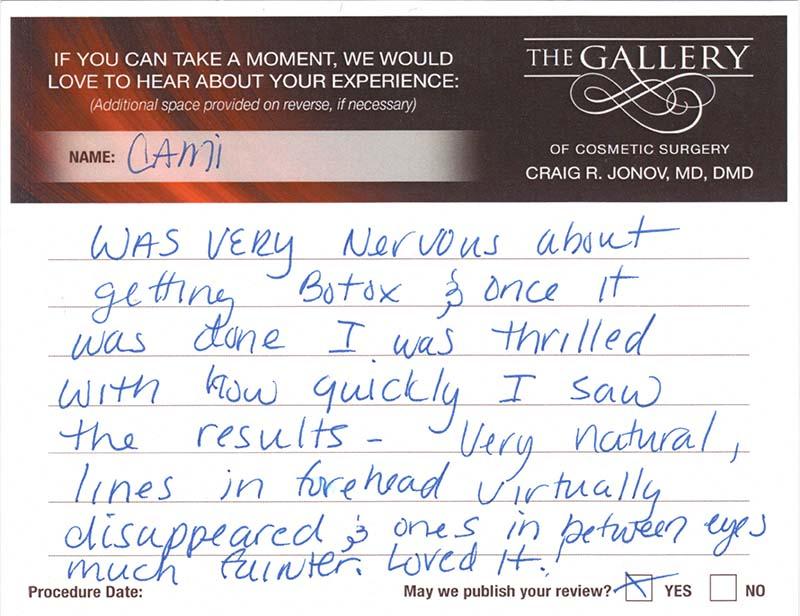 IF YOU CAN TAKE A MOMENT, WE WOULD
LOVE TO HEAR ABOUT YOUR EXPERIENCE:
(Additional space provided on reverse, if necessary)
NAME: CAMI
THE GALLERY
OF COSMETIC SURGERY
CRAIG R. JONOV, MD, DMD
WAS VERY Nervous about
getting Botox & once it
was done I was thrilled
with how quickly I saw
the results - Very natural,
lines in forehead virtually
disappeared & ones in between eyes
much fainter. Loved it!
Procedure Date:
May we publish your review? X YES NO